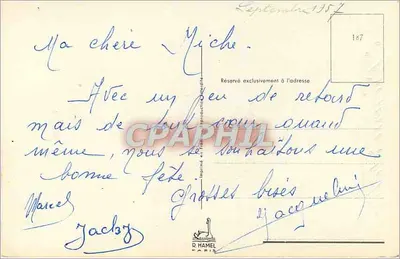 Septembre 1957
Ma chère Miche.
167
Réservé exclusivement à l'adresse
Avec un peu de retard
mais de tout cœur quand
même, nous te souhaitons une
bonne fête.
Grosses bises
Marcel
Jacqueline
Jacky
CPARAMA
R. HAMEL
PARIS